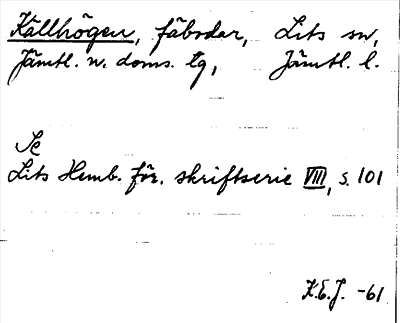 Källhögen, fäbodar, Lits sn,
Jämtl. n. doms. tg, Jämtl. l.
Se
Lits Hemb. för. skriftserie VIII, s. 101
K.E.J. -61